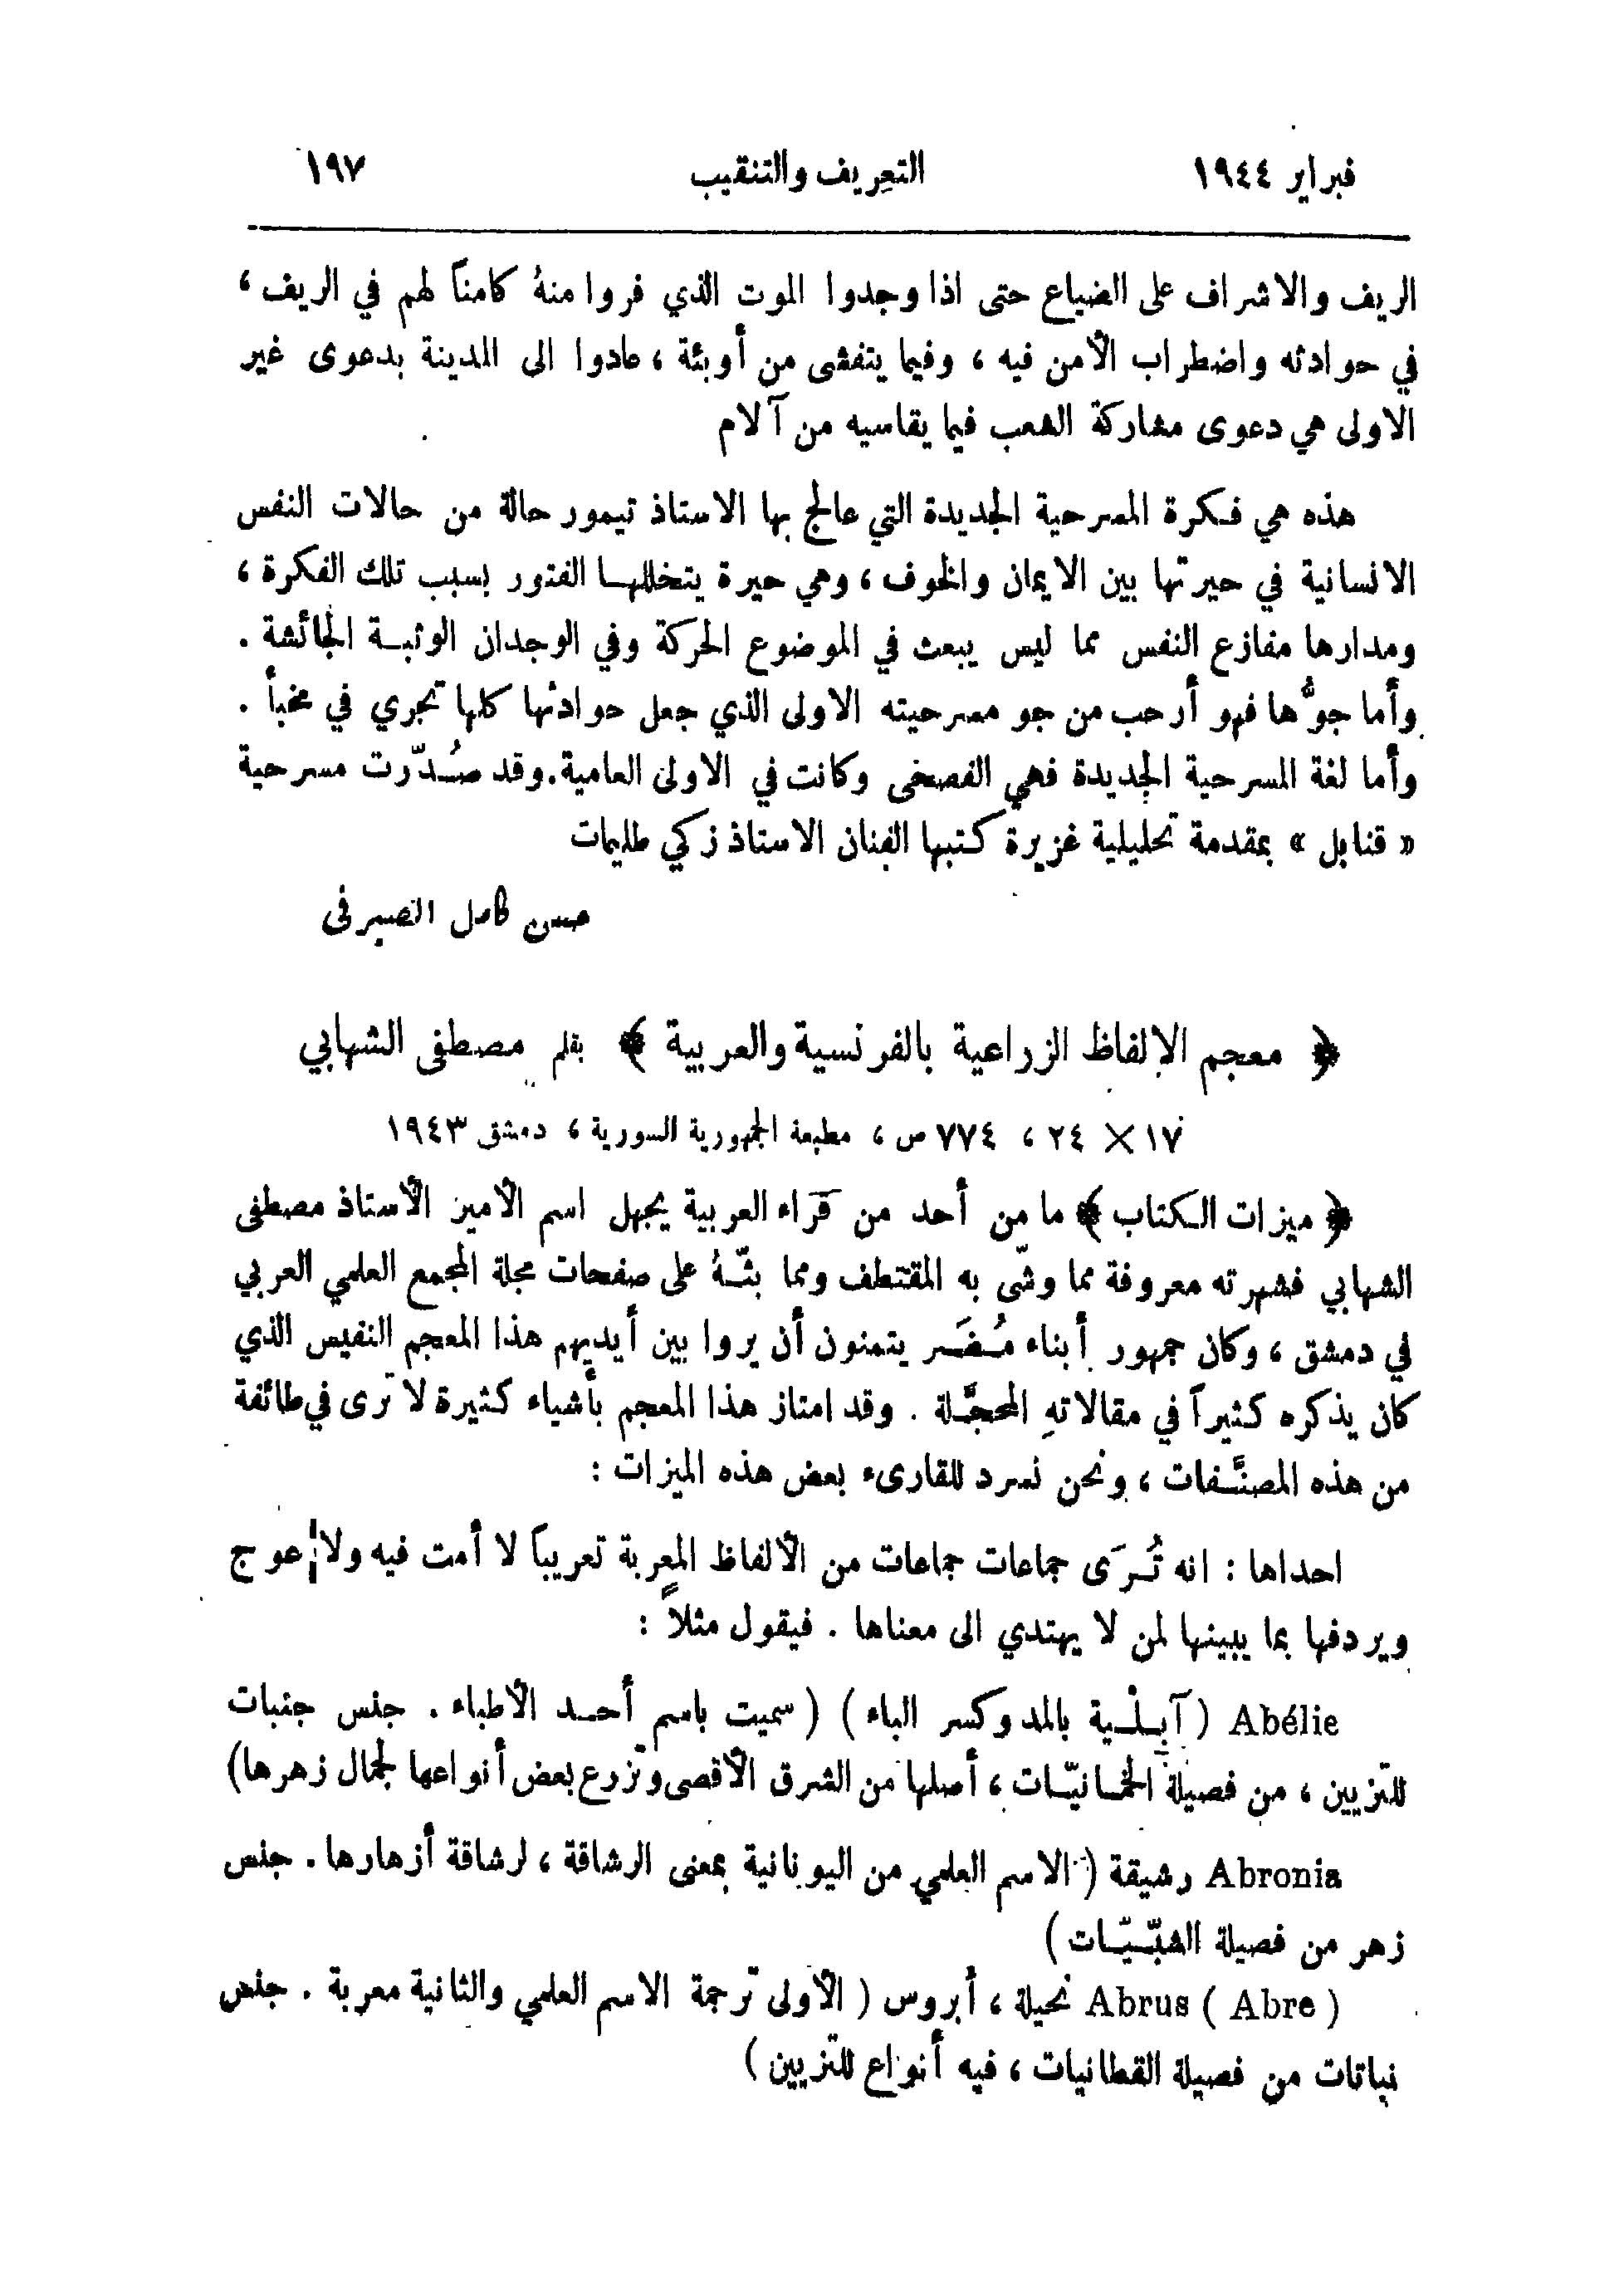 فبراير ١٩٤٤ التعريف والتنقيب ١٩٧
الريف والاشراف على الضياع حتى اذا وجدوا الموت الذي فروا منهُ كامناً لهم في الريف ،
في حوادثه واضطراب الأمن فيه ، وفيما يتفشى من أوبئة ، عادوا الى المدينة بدعوى غير
الاولى هي دعوى مشاركة الشعب فيما يقاسيه من آلام
هذه هي فكرة المسرحية الجديدة التي عالج بها الاستاذ تيمور حالة من حالات النفس
الانسانية في حيرتها بين الايمان والخوف ، وهي حيرة يتخللها الفتور بسبب تلك الفكرة ،
ومدارها مفازع النفس مما ليس يبعث في الموضوع الحركة وفي الوجدان الوثبة الجائشة .
وأما جوُّها فهو أرحب من جو مسرحيته الاولى الذي جعل حوادثها كلها تجري في مخبأ .
وأما لغة المسرحية الجديدة فهي الفصحى وكانت في الاولى العامية . وقد صُدّرت مسرحية
« قنابل » بمقدمة تحليلية غزيرة كتبها الفنان الاستاذ زكي طليمات
حسن كامل الصيرفى
﴿ معجم الالفاظ الزراعية بالفرنسية والعربية ﴾ بقلم مصطفى الشهابي
١٧ × ٢٤ ، ٧٧٤ ص ، مطبعة الجمهورية السورية ، دمشق ١٩٤٣
﴿ ميزات الكتاب ﴾ ما من أحد من قرّاء العربية يجهل اسم الأمير الأستاذ مصطفى
الشهابي فشهرته معروفة مما وشّى به المقتطف ومما بثّهُ على صفحات مجلة المجمع العلمي العربي
في دمشق ، وكان جمهور أبناء مُضَر يتمنون أن يروا بين أيديهم هذا المعجم النفيس الذي
كان يذكره كثيراً في مقالاتهِ المحجَّلة . وقد امتاز هذا المعجم بأشياء كثيرة لا ترى في طائفة
من هذه المصنَّفات ، ونحن نسرد للقارىء بعض هذه الميزات :
احداها : انه تُرَى جماعات جماعات من الألفاظ المعربة تعريباً لا أمت فيه ولا عوج
ويردفها بما يبينها لمن لا يهتدي الى معناها . فيقول مثلاً :
Abélie ( آبِلْية بالمد وكسر الباء ) ( سميت باسم أحد الأطباء . جنس جنبات
للتزيين ، من فصيلة الخمانيّات ، أصلها من الشرق الأقصى وتزرع بعض أنواعها لجمال زهرها)
Abronia رشيقة ( الاسم العلمي من اليونانية بمعنى الرشاقة ، لرشاقة أزهارها . جنس
زهر من فصيلة الشبّيّات )
Abrus ( Abre ) نحيلة ، أبروس ( الأولى ترجمة الاسم العلمي والثانية معربة . جنس
نباتات من فصيلة القطانيات ، فيه أنواع للتزيين )